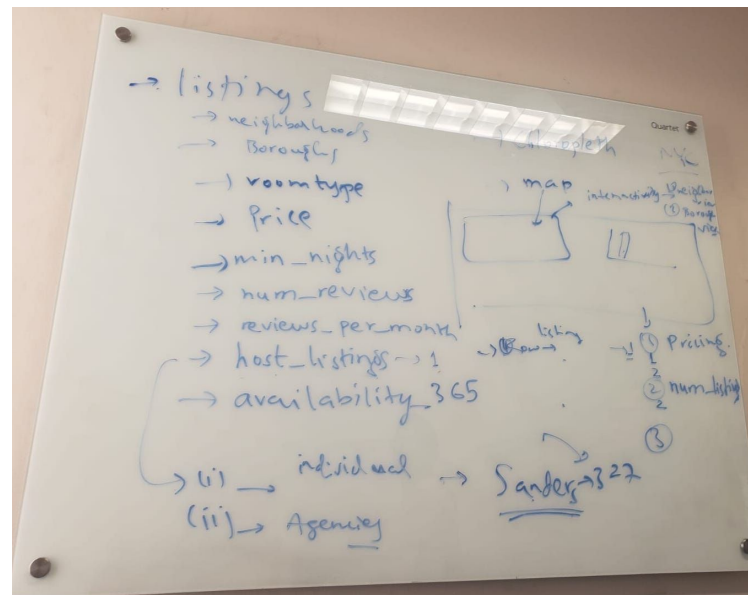 → listings
→ neighborhoods
→ Boroughs
→ roomtype
→ Price
→ min_nights
→ num_reviews
→ reviews_per_month
→ host_listings → 1
→ availability_365
→ (i) → individual → Sanders → 327
(ii) → Agencies
Quartet
map
interactivity
① Borough
view
→ Row → listing
① Pricing.
1
2
② num_listing
2
③